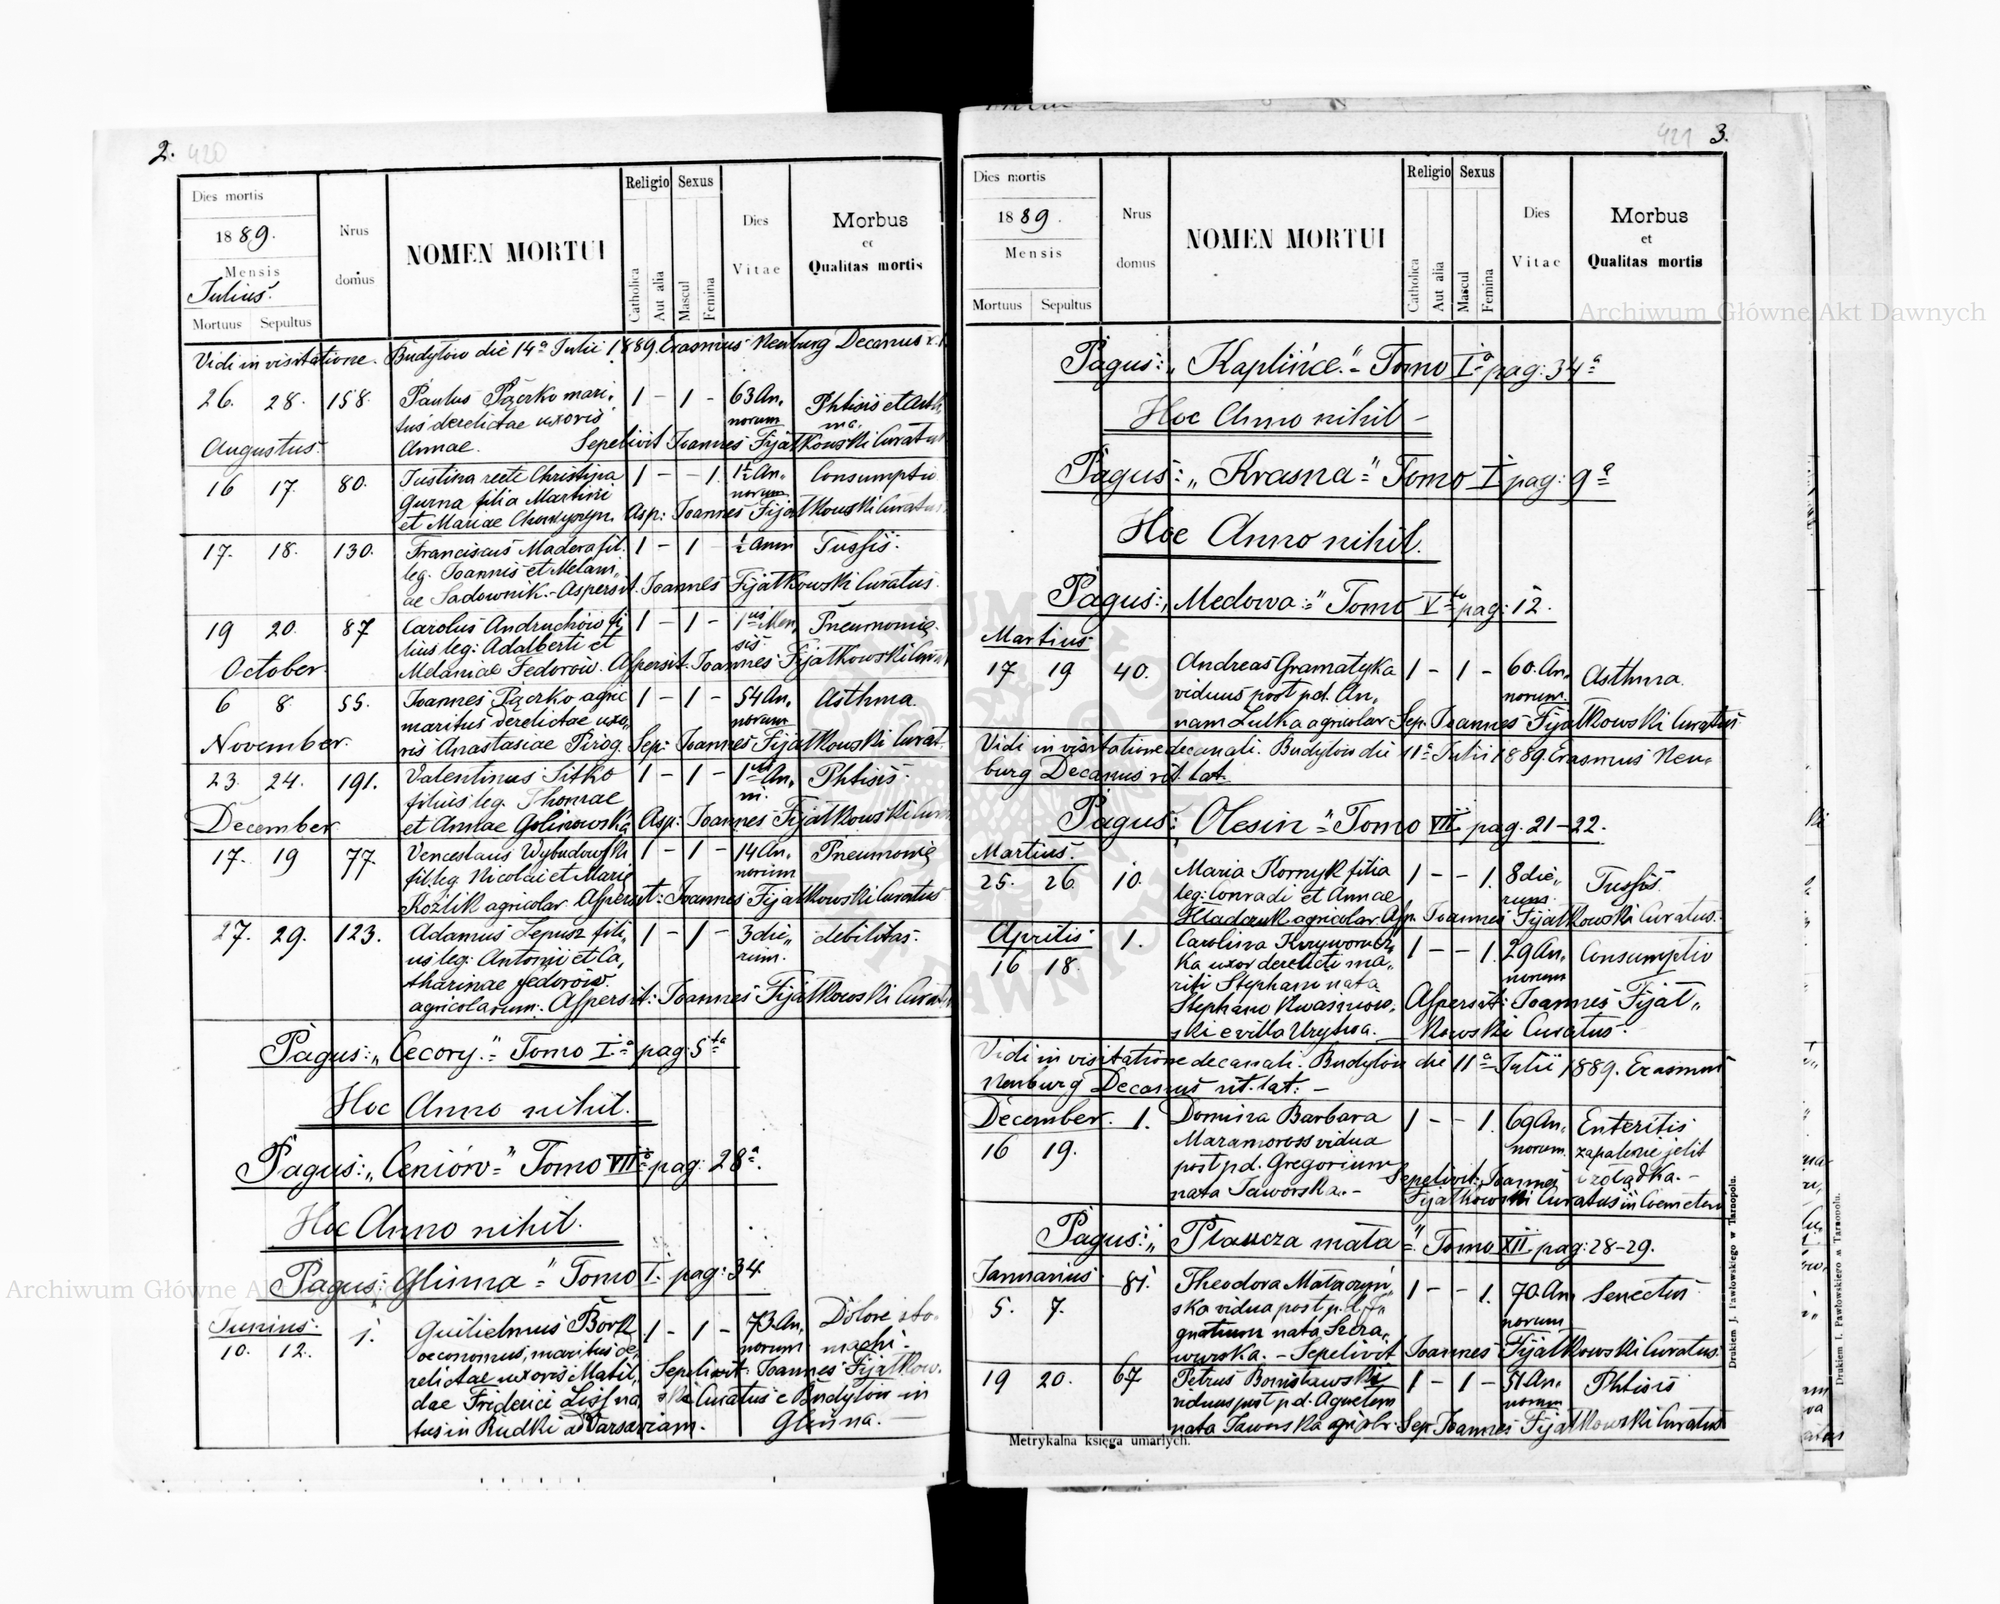 2. 420
Dies mortis
1889.
Mensis
Julius.
Mortuus Sepultus
Nrus domus
NOMEN MORTUI
Religio
Catholica
Aut alia
Sexus
Mascul
Femina
Dies Vitae
Morbus
et
Qualitas mortis
Vidi in visitatione. Budyłow die 14a Julii 1889. Erasmus Neuburg Decanus
26. 28. 158. Paulus Pączko mari- 1 – 1 – 63 An- Phtisis et Asth-
tus derelictae uxoris norum ma.
Augustus. Annae. Sepelivit Joannes Fijałkowski Curatus
16 17. 80. Justina recte Christina 1 – – 1. 1½ An- Consumptio
Gurna filia Martini norum
et Mariae Asp: Joannes Fijałkowski Curatus
17. 18. 130. Franciscus Madera fil. 1 – 1 – ½ Anni Tussis.
leg. Joannis et Melani-
ae Sadownik. – Aspersit. Joannes Fijałkowski Curatus.
19 20. 87 Carolus Andruchów fi- 1 – 1 – 1us Men- Pneumonia
lius leg: Adalberti et sis.
October. Melaniae Fedorów. Aspersit. Joannes Fijałkowski
6 8. 55. Joannes Pączko agric 1 – 1 – 54 An- Asthma.
maritus derelictae uxo- norum
November. ris Anastasiae Piróg. Sep: Joannes Fijałkowski Curat.
23. 24. 191. Valentinus Sitko 1 – 1 – 1 An- Phtisis.
filius leg. Thomae ni.
December et Annae Golinowska Asp: Joannes Fijałkowski
17. 19 77. Venceslaus Wybudowski 1 – 1 – 14 An- Pneumonia
fil. leg. Nicolai et Marie norum
Koźlik agricolar. Aspersit: Joannes Fijałkowski Curatus
27. 29. 123. Adamus Lepusz fili- 1 – 1 – 3 die- debilitas.
us leg: Antonii et Ca- rum.
tharinae Fedorów.
agricolarum. Aspersit: Joannes Fijałkowski
Pagus: „Cecory." Tomo I.o pag: 5ta
Hoc Anno nihil.
Pagus: „Ceniów" Tomo VIIo pag: 28a.
Hoc Anno nihil.
Pagus: Glinna" Tomo I. pag: 34.
Junius. 1. Guilielmus Bork 1 – 1 – 73. An- Dolore sto-
10. 12. oeconomus, maritus de- norum machi.
relictae uxoris Matil- Sepelivit: Joannes Fijałkow-
dae Friderici Liss na- ski Curatus e Budyłow in
tus in Rudki ad Varsaviam. Glinna. —
421 3.
Dies mortis
1889.
Mensis
Mortuus Sepultus
Nrus domus
NOMEN MORTUI
Religio
Catholica
Aut alia
Sexus
Mascul
Femina
Dies Vitae
Morbus
et
Qualitas mortis
Pagus: „Kaplińce." Tomo Io pag: 34a
Hoc Anno nihil –
Pagus: „Krasna" Tomo I pag: 9a
Hoc Anno nihil.
Pagus: „Medowa" Tomo Vto pag: 12.
Martius
17 19 40. Andreas Gramatyka 1 – 1 – 60. An- Asthma.
viduus post pd. An- norum.
nam Lulka agricolar. Sep. Joannes Fijałkowski Curatus
Vidi in visitatione decanali. Budyłow die 11a Julii 1889. Erasmus Neu-
burg Decanus rit. lat.
Pagus: „Olesin" Tomo VII pag. 21–22.
Martius.
25. 26. 10. Maria Kornyk filia 1 – – 1. 8 die- Tussis.
leg: Conradi et Annae rum.
Hladczuk agricolar. Asp. Joannes Fijałkowski Curatus.
Aprilis 1. Carolina 1 – – 1. 29 An- Consumptio
16 18. ka uxor derelicti ma- norum
riti Stephani nata
Stephano Kwasniow- Aspersit: Joannes Fijał-
ski e villa Urytwa. – kowski Curatus.
Vidi in visitatione decanali. Budyłow die 11a Julii 1889. Erasmus
Neuburg Decanus rit. lat: –
December. 1. Domina Barbara 1 – – 1. 69 An- Enteritis
16 19. Maramoross vidua norum. zapalenie jelit
post pd. Gregorium Sepelivit: Joannes i żołądka. –
nata Jaworska. – Fijałkowski Curatus in Coemeterio
Pagus: „Płaucza mała" Tomo XII pag: 28–29.
Januarius. 81. Theodora Mataczyń- 1 – – 1. 70. An Senectus
5. 7. ska vidua post p. d. I- norum
gnatium nata Szcza-
wurska. – Sepelivit Joannes Fijałkowski Curatus.
19 20. 67 Petrus Bonisławski 1 – 1 – 51 An- Phtisis
viduus post p.d. Agnetem norum
nata Jaworska agricolar. Sep. Joannes Fijałkowski Curatus
Metrykalna księga umarłych.
Drukiem J. Pawłowskiego w Tarnopolu.
Drukiem J. Pawłowskiego w Tarnopolu.
Archiwum Główne Akt Dawnych
Archiwum Główne Akt